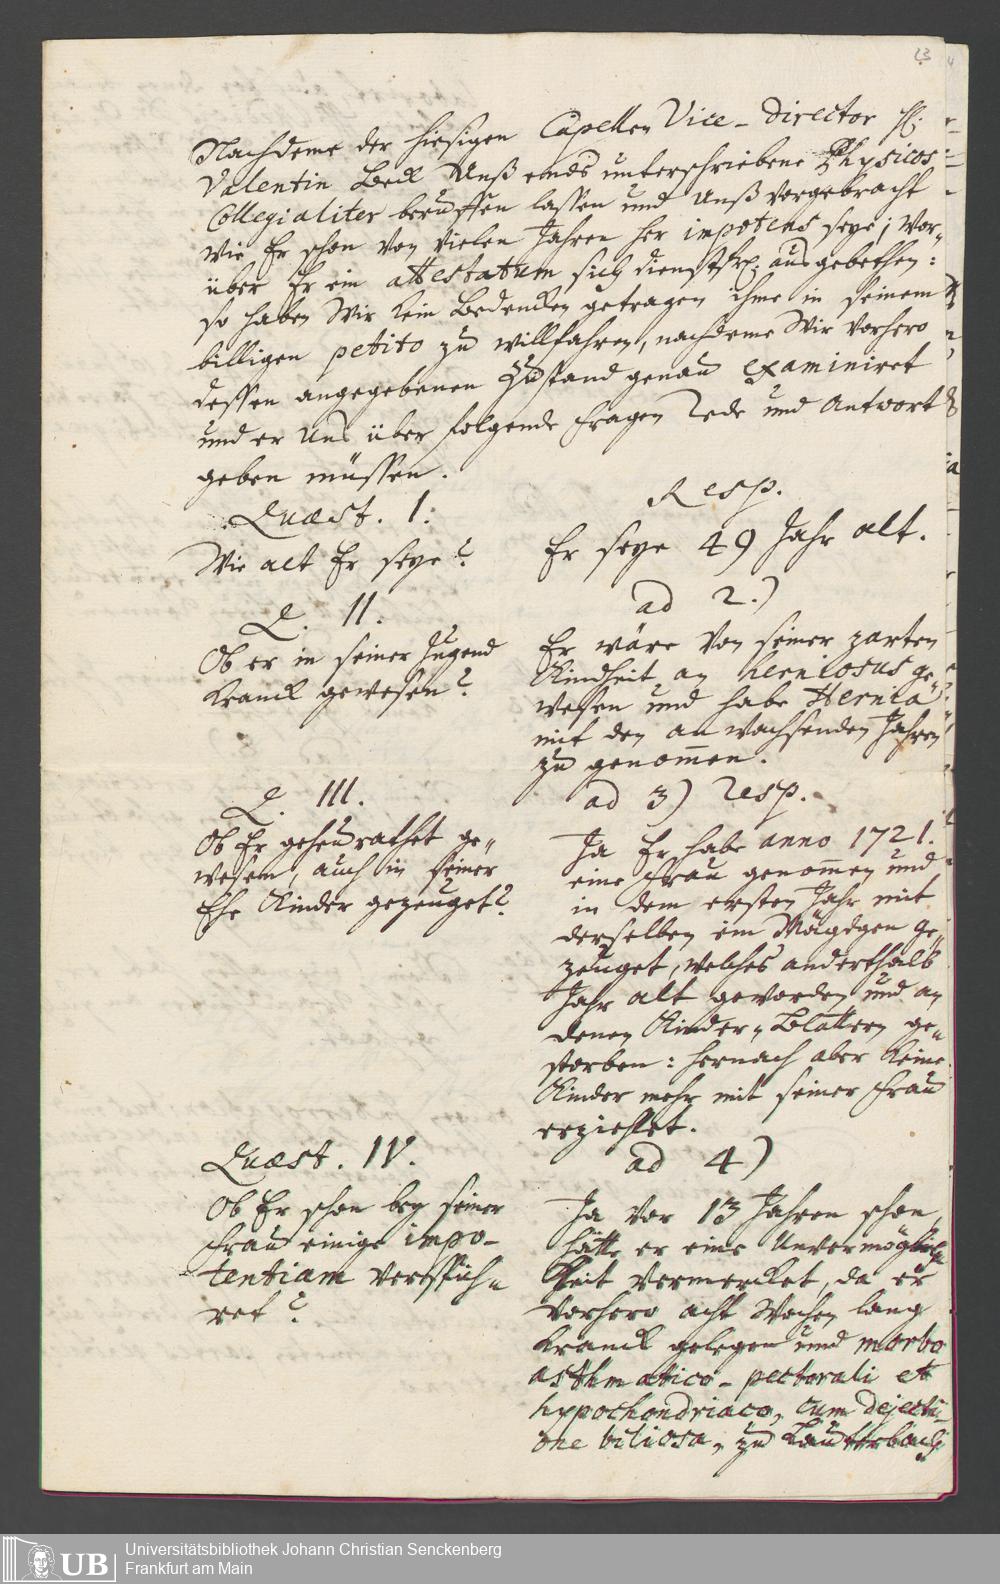 23
Nachdeme der hiesigen Capellen Vice-Director H.
Valentin Beck Unß endsunterschriebene Physicos
Collegialiter beruffen lassen und Unß vorgebracht
wie Er schon von vielen Jahren her impotens seye; wor„
über Er ein attestatum sich dienstfrl. ausgebethen:
so haben Wir kein Bedencken getragen ihme in seinem
billigen petito zu willfahren, nachdeme Wir vorhero
dessen angegebenen Zustand genau examiniret
und er Uns über folgende Fragen Rede und Antwort
geben müssen.
Quæst. I.
Wie alt Er seye?
Resp.
Er seye 49 Jahr alt.
Q. II.
Ob er in seiner Jugend
kranck gewesen?
ad 2.)
Er wäre von seiner zarten
Kindheit an herniosus ge„
wesen und habe Hernia
mit den anwachsenden Jahren
zu genom̄en.
Q. III.
Ob Er geheurathet ge„
wesen, auch in seiner
Ehe Kinder gezeuget?
ad 3) Resp.
Ja Er habe anno 1721.
eine Frau genom̄en und
in dem ersten Jahr mit
derselben ein Mägdgen ge„
zeuget, welches anderthalb
Jahr alt geworden und an
denen Kinder„Blattern ge„
storben: hernach aber keine
Kinder mehr mit seiner Frau
erziehlet.
Quæst. IV.
Ob Er schon bey seiner
Frau einige impo-
tentiam verspüh„
ret?
ad 4)
Ja vor 13 Jahren schon
hätte er eine Unvermöglich„
keit vermercket, da er
vorhero acht Wochen lang
kranck gelegen und morbo
asthmatico-pectorali et
hypochondriaco, cum dejecti-
one biliosa, zu Lauterbach
UB
Universitätsbibliothek Johann Christian Senckenberg
Frankfurt am Main